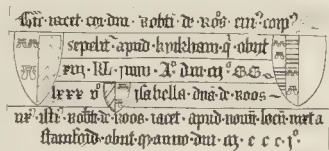 Hic iacet cor dni Robti de Ros cuiꝰ corpꝰ
sepelit apud kyrkham qͥ obiit
xiij KL Junii Aͦ dni mͦ CC
lxxx vͦ Isabella dna de Roos
ux istiꝰ Robti de Roos iacet apud nouū locū iuxta
Stamford obiit anno dni m c c c jͦ